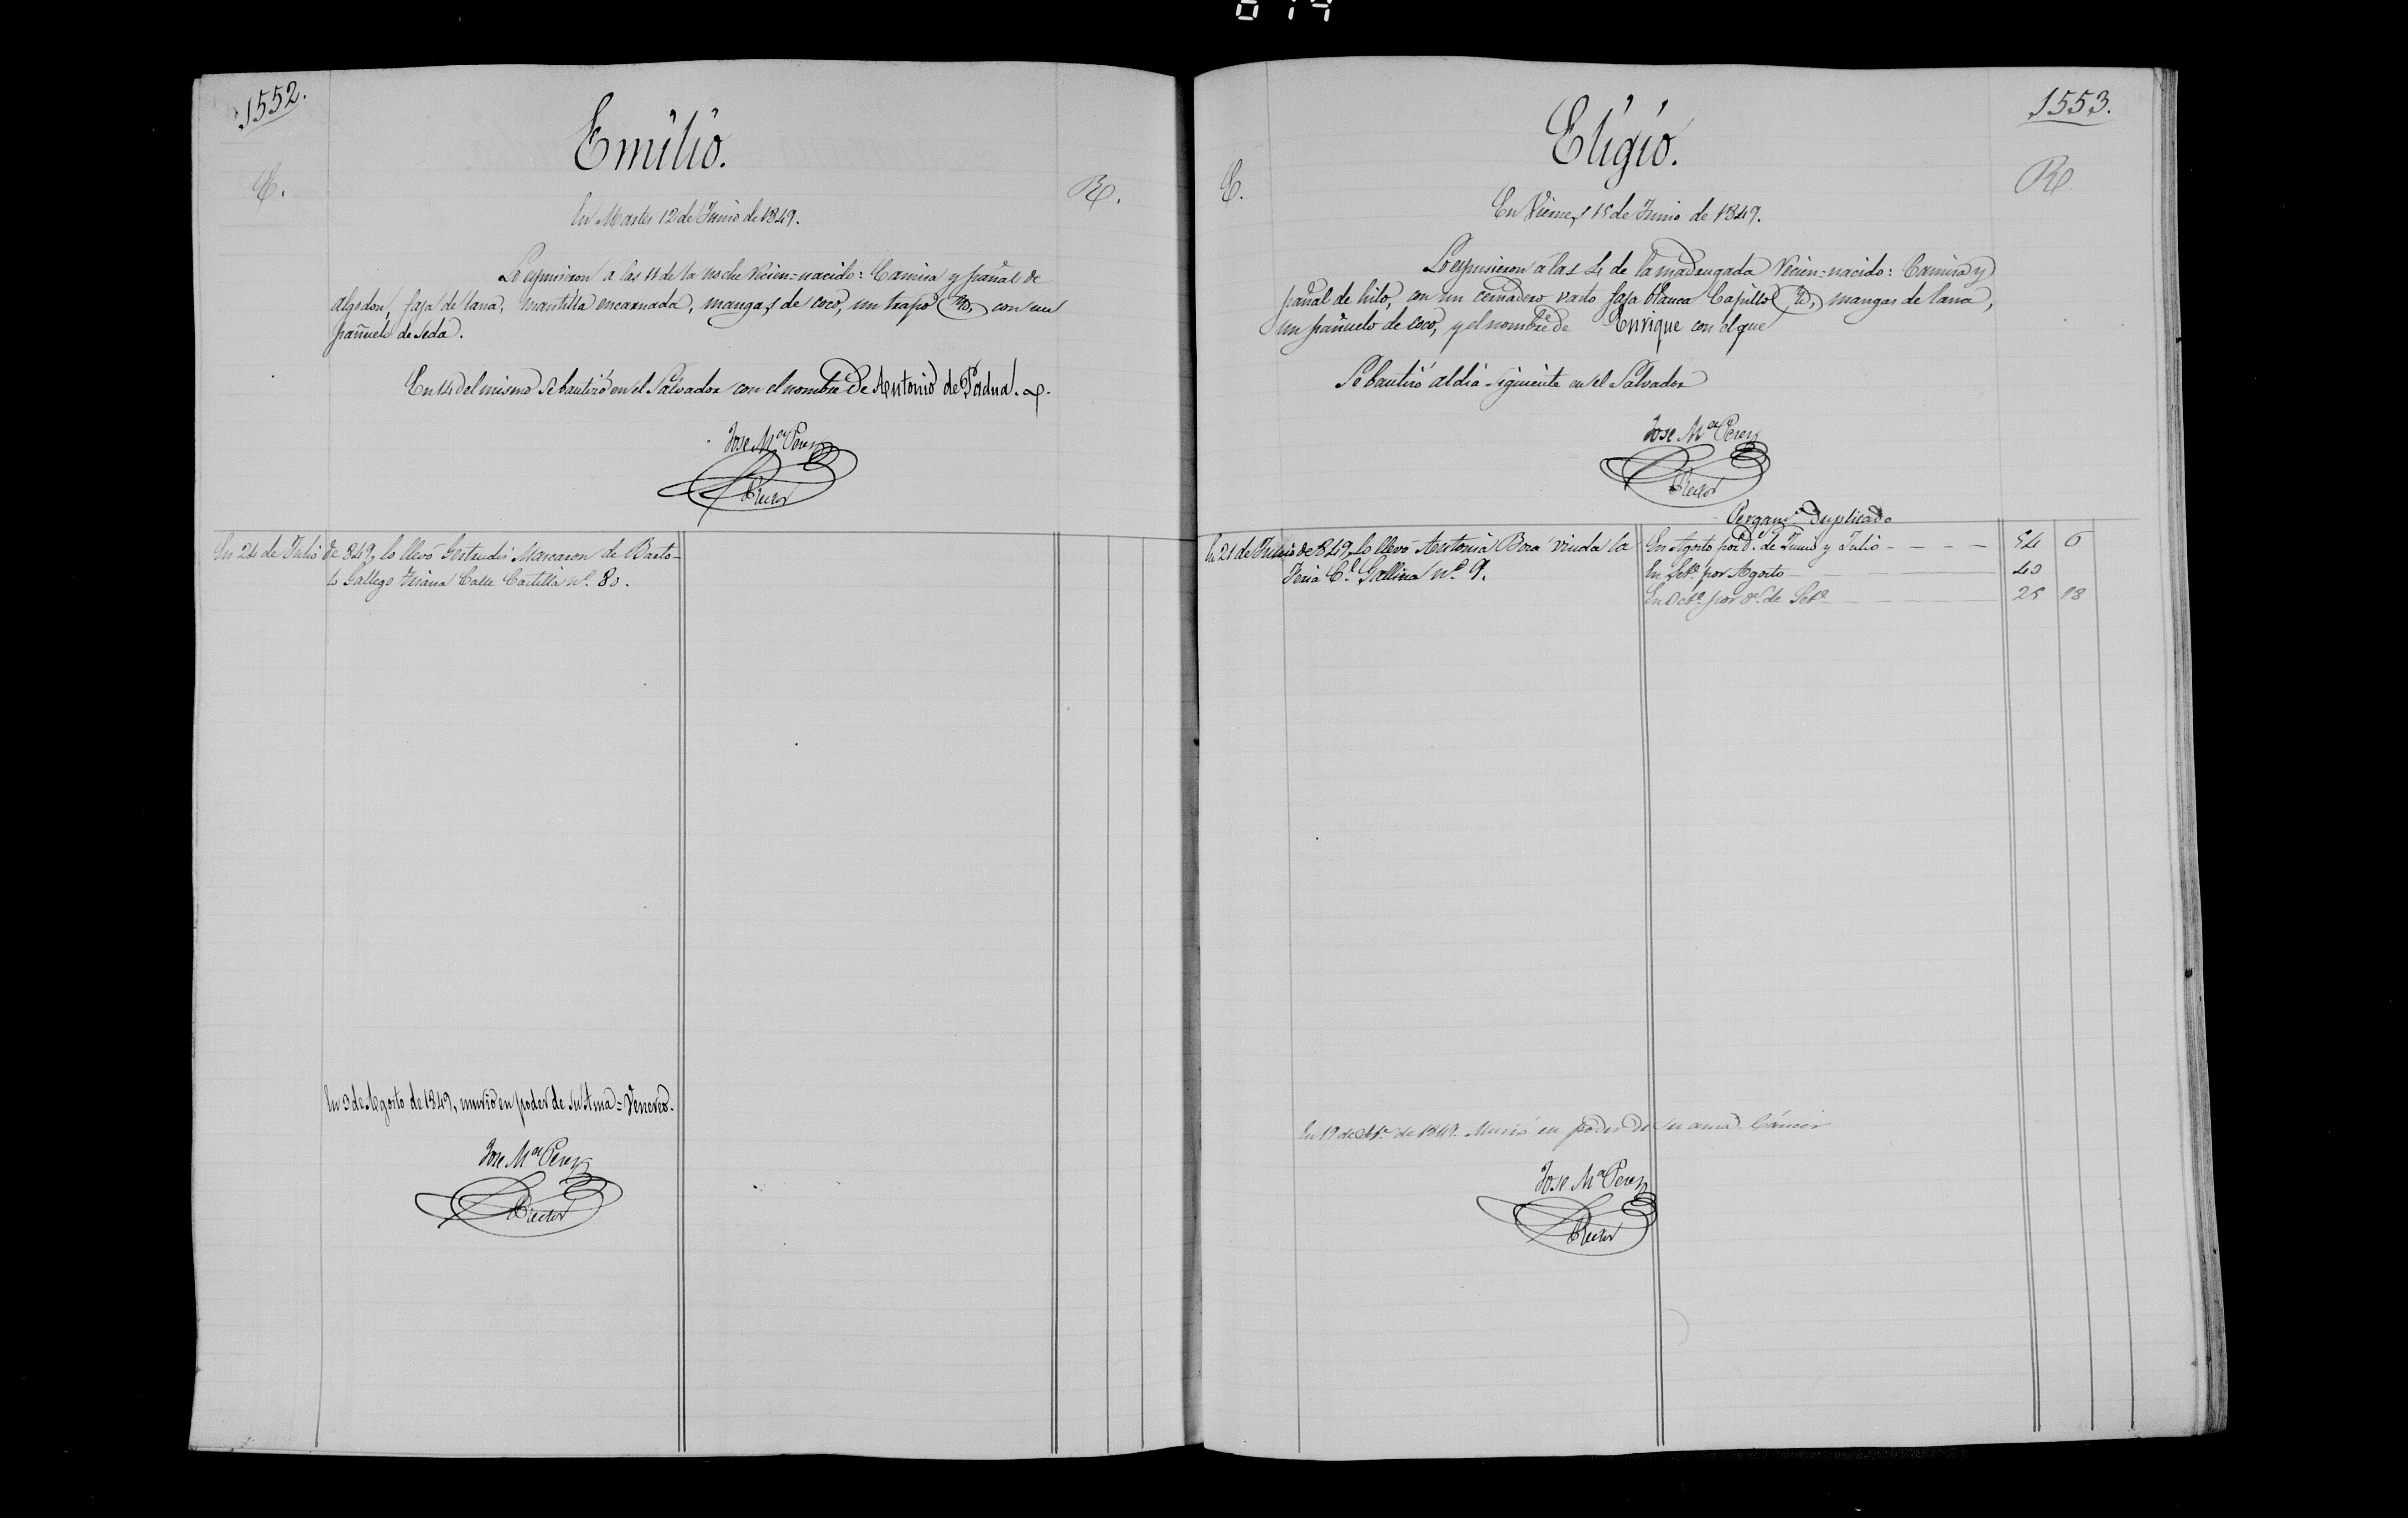 014
1552.
Emilio.
E.
R.
En Martes 12 de Junio de 1849.
Lo espusieron a las 11 de la noche recien=nacido: Camisa y pañal de
algodon, faja de lana, Mantilla encarnada, mangas de coco, un trapo con un
pañuelo de seda.
En 14 del mismo se bautizó en el Salvador con el nombre de Antonio de Padua.
Jose Mª Perez
Rector
En 24 de Julio de 849, lo llevó Gertrudis Mascaron de Barto-
lo Gallego Triana Calle Castilla nº. 80.
En 3 de Agosto de 1849, murió en poder de su Ama = Venereo.
Jose Mª Perez
Rector
1553.
Eligio.
E.
R.
En Viernes 15 de Junio de 1849.
Lo espusieron a las 4 de la madrugada recien=nacido: Camisa y
pañal de hilo, con un cernadero vasto faja blanca Capillo mangas de lana,
un pañuelo de coco, y el nombre de Enrique con el que
Se bautizó al dia siguiente en el Salvador
Jose Mª Perez
Rector
Pergamº duplicado
En 21 de Junio de 849, lo llevó Antonia Bora viuda la
Feria Cº Gallina nº 9.
En Agosto por d.s de Junio y Julio - - - - 54 6
En Setº por Agosto 40
En Octº por d.s de Setº 25 18
En 19 de de 1849. Murió en poder de su ama. Cáncer
Jose Mª Perez
Rector